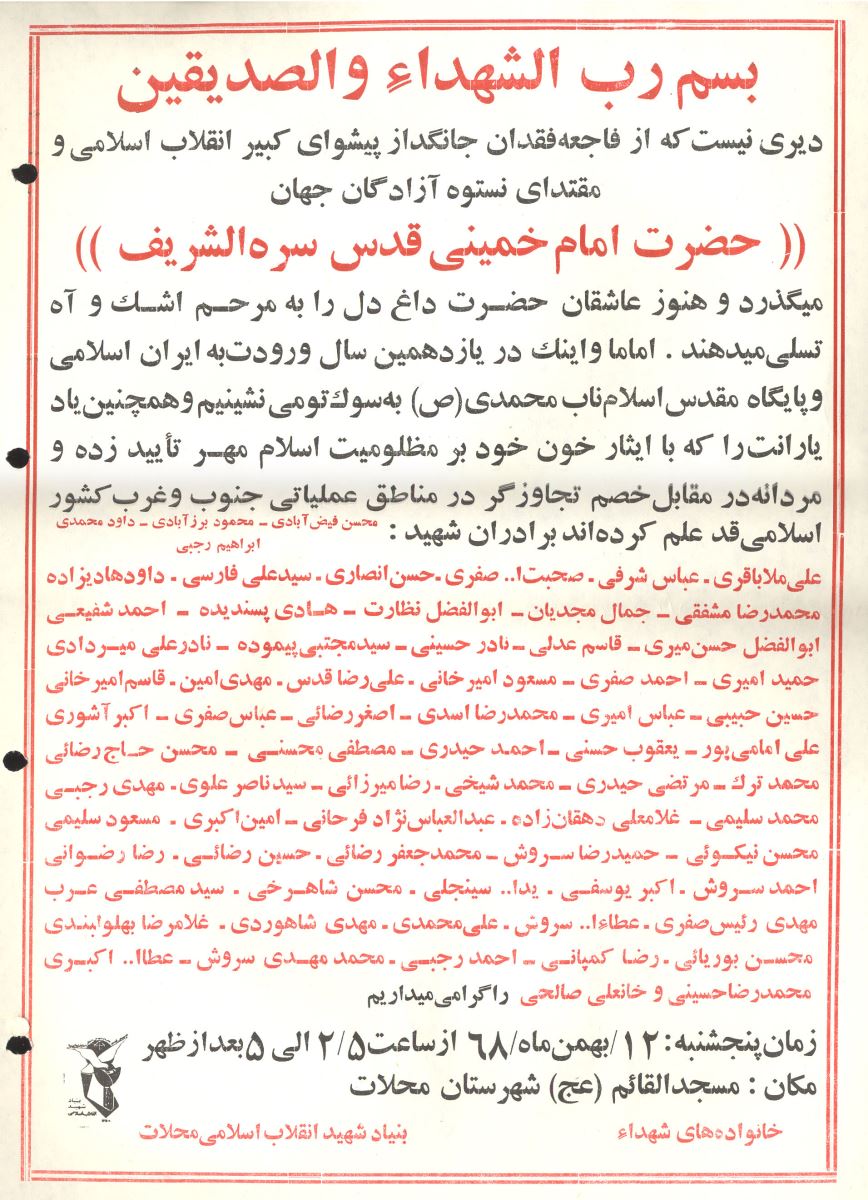 بسم رب الشهداءِ والصدیقین
دیری نیست که از فاجعه فقدان جانگداز پیشوای کبیر انقلاب اسلامی و
مقتدای نستوه آزادگان جهان
(( حضرت امام خمینی قدس سره الشریف ))
میگذرد و هنوز عاشقان حضرت داغ دل را به مرحم اشك و آه
تسلی میدهند . اماما و اینك در یازدهمین سال ورودت به ایران اسلامی
و پایگاه مقدس اسلام ناب محمدی (ص) به سوك تو می نشینیم و همچنین یاد
یارانت را که با ایثار خون خود بر مظلومیت اسلام مهر تأیید زده و
مردانه در مقابل خصم تجاوزگر در مناطق عملیاتی جنوب و غرب کشور
اسلامی قد علم کرده اند برادران شهید : محسن فیض آبادی ـ محمود برزآبادی ـ داود محمدی
ابراهیم رجبی
علی ملاباقری ـ عباس شرفی ـ صحبت ا.. صفری ـ حسن انصاری ـ سیدعلی فارسی ـ داود هادیزاده
محمدرضا مشفقی ـ جمال مجدیان ـ ابوالفضل نظارت ـ هادی پسندیده ـ احمد شفیعی
ابوالفضل حسن میری ـ قاسم عدلی ـ نادر حسینی ـ سیدمجتبی پیموده ـ نادرعلی میردادی
حمید امیری ـ احمد صفری ـ مسعود امیرخانی ـ علی رضا قدس ـ مهدی امین ـ قاسم امیرخانی
حسین حبیبی ـ عباس امیری ـ محمدرضا اسدی ـ اصغر رضائی ـ عباس صفری ـ اکبر آشوری
علی امامی پور ـ یعقوب حسنی ـ احمد حیدری ـ مصطفی محسنی ـ محسن حاج رضائی
محمد ترك ـ مرتضی حیدری ـ محمد شیخی ـ رضا میرزائی ـ سیدناصر علوی ـ مهدی رجبی
محمد سلیمی ـ غلامعلی دهقان زاده ـ عبدالعباس نژاد فرحانی ـ امین اکبری ـ مسعود سلیمی
محسن نیکوئی ـ حمیدرضا سروش ـ محمدجعفر رضائی ـ حسین رضائی ـ رضا رضوانی
احمد سروش ـ اکبر یوسفی ـ یدا.. سینجلی ـ محسن شاهرخی ـ سید مصطفی عرب
مهدی رئیس صفری ـ عطاءا.. سروش ـ علی محمدی ـ مهدی شاهوردی ـ غلامرضا بهلولبندی
محسن بوریائی ـ رضا کمپانی ـ احمد رجبی ـ محمد مهدی سروش ـ عطاا.. اکبری
محمدرضا حسینی و خانعلی صالحی را گرامی میداریم
زمان پنجشنبه: ۱۲/بهمن ماه/۶۸ از ساعت ۲/۵ الی ۵ بعدازظهر
مکان : مسجد القائم (عج) شهرستان محلات
بنیاد
شهید
انقلاب اسلامی
خانواده های شهداءِ
بنیاد شهید انقلاب اسلامی محلات